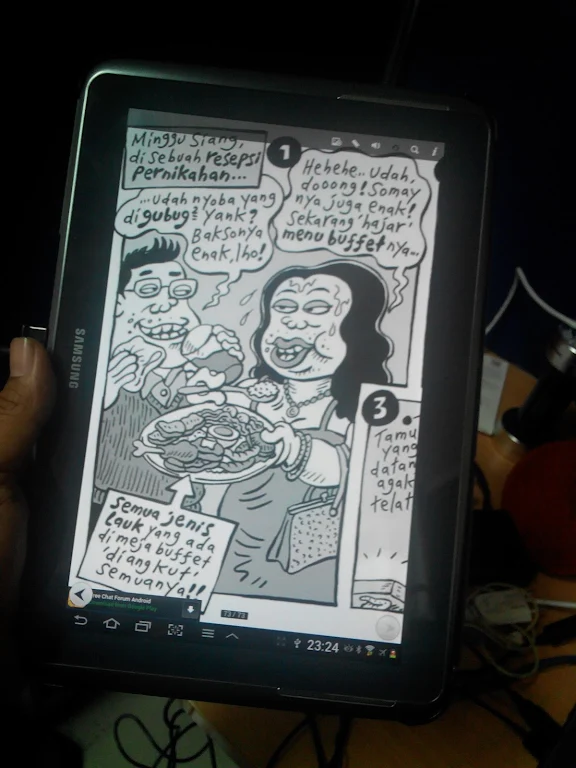 Minggu siang,
di sebuah resepsi
pernikahan...
1
...udah nyoba yang
di gubug² Yank?
Baksonya
enak, lho!
Hehehe.. udah,
dooong! Somay
nya juga enak!
Sekarang 'hajar'
menu buffetnya...
Semua jenis
lauk yang ada
di meja buffet
'diangkut'
semuanya!!
3
Tamu
yang
datan
agak
telat
SAMSUNG
Free Chat Forum Android
23:24